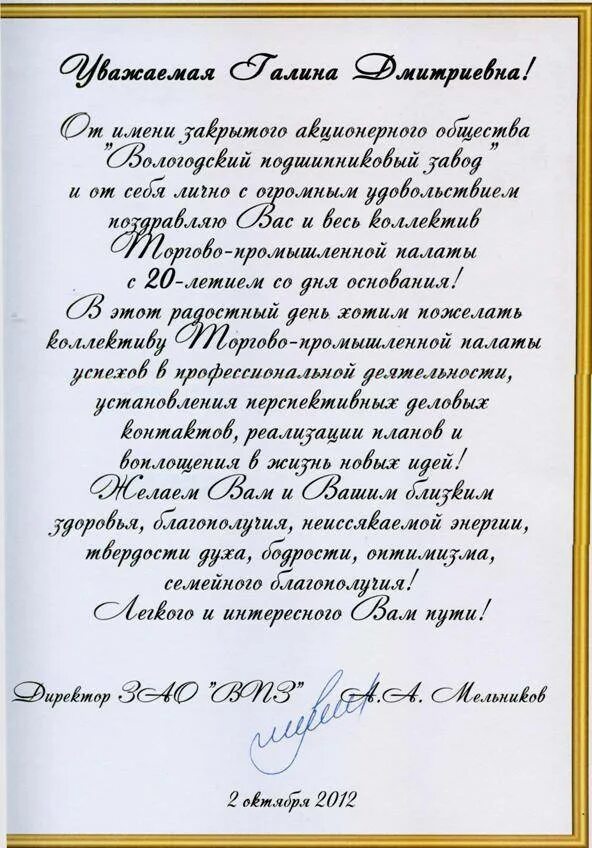 Уважаемая Галина Дмитриевна!
От имени закрытого акционерного общества
"Вологодский подшипниковый завод"
и от себя лично с огромным удовольствием
поздравляю Вас и весь коллектив
Торгово-промышленной палаты
с 20-летием со дня основания!
В этот радостный день хотим пожелать
коллективу Торгово-промышленной палаты
успехов в профессиональной деятельности,
установления перспективных деловых
контактов, реализации планов и
воплощения в жизнь новых идей!
Желаем Вам и Вашим близким
здоровья, благополучия, неиссякаемой энергии,
твердости духа, бодрости, оптимизма,
семейного благополучия!
Легкого и интересного Вам пути!
Директор ЗАО "ВПЗ" А.А. Мельников
2 октября 2012